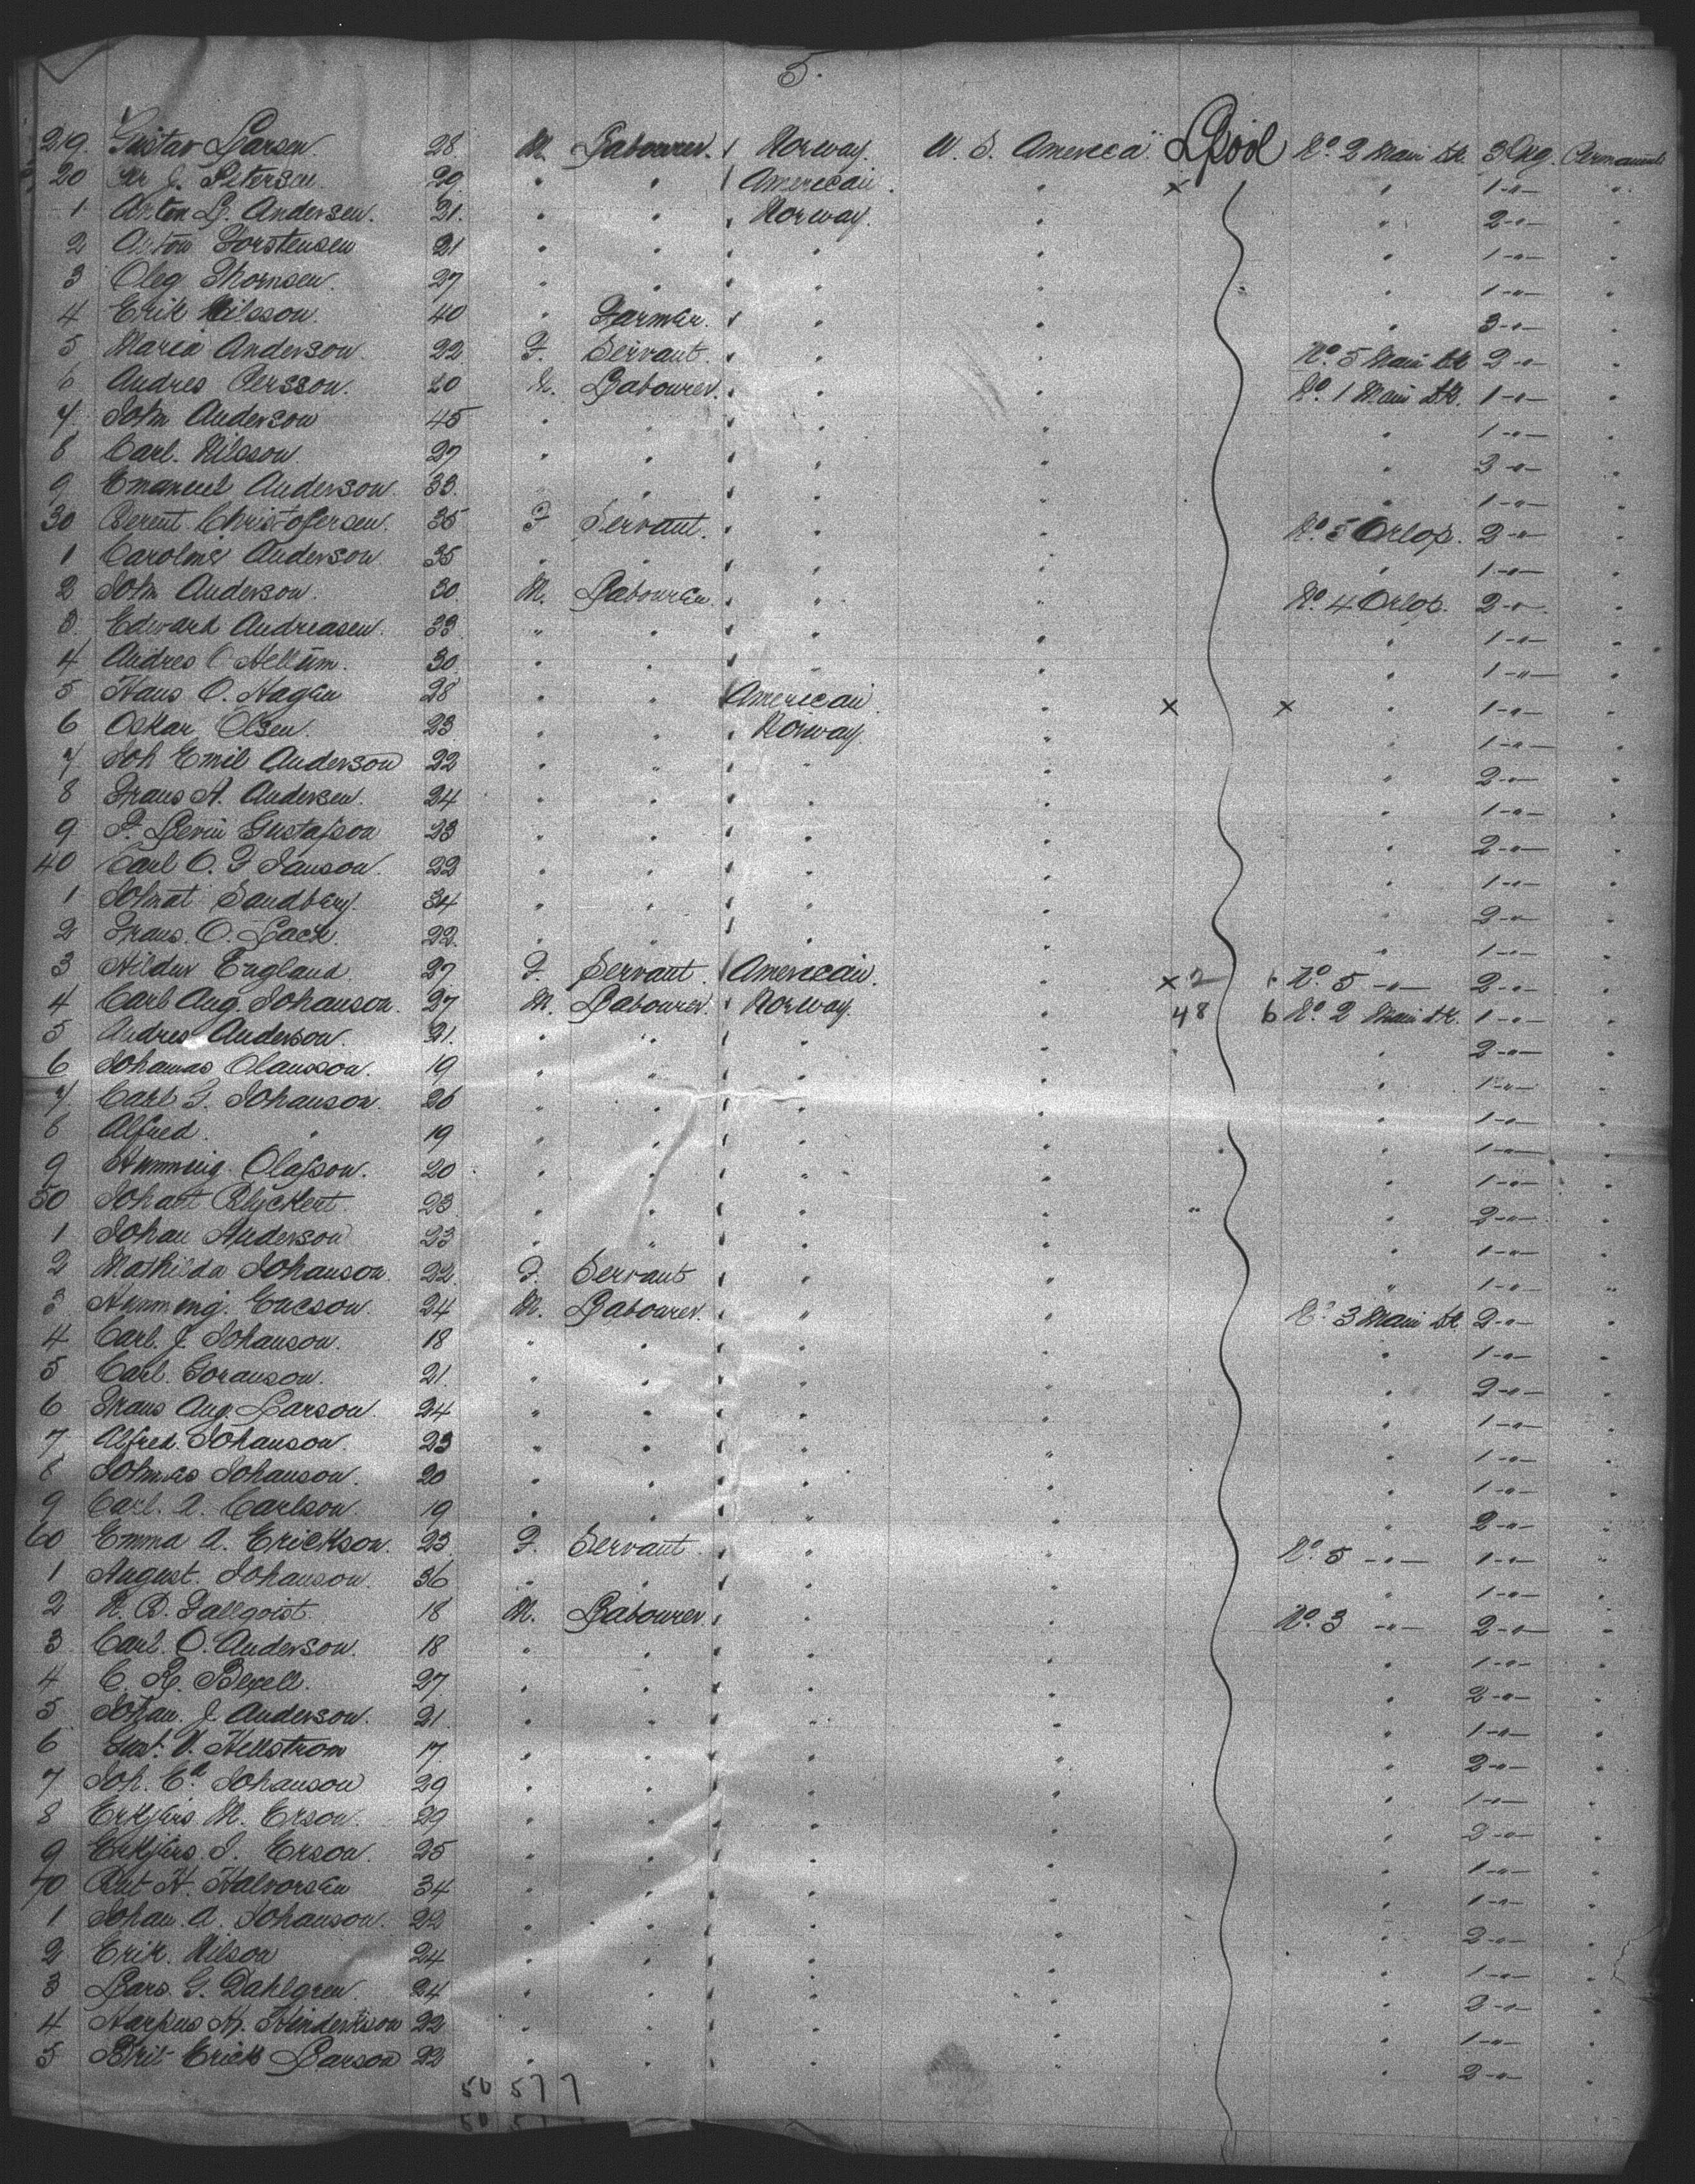 5.
219. Gustav Larsen. 28. M. Labourer. Norway. U. S. America L'pool No. 2 Main dk. 3 Pkg. Permanent
20 J. Petersen. 29. " " American. " × " 1 -"- "
1 Anton L. Andersen. 21. " " Norway. " " 2 -"- "
2 Anton Torstensen 21 " " " " " 1 -"- "
3 Oleg Thomsen. 27 " " " " " 1 -"- "
4 Erik Nilsson. 40 " Farmer. " " " 3 -"- "
5 Maria Anderson. 22 F. Servant. " " No. 5 Main dk 2 -"- "
6 Andres Persson. 20 M. Labourer. " " No. 1 Main dk. 1 -"- "
7 John Anderson 45 " " " " " 1 -"- "
8 Carl. Nilsson. 27 " " " " " -"- "
9 Emanuel Anderson. 33. " " " " 1 -"- "
30 Berent Christofersen. 35 F Servant. " " No. 5 Orlop. 2 -"- "
1 Caroline Anderson. 35 " " " " " 1 -"- "
2 John Anderson. 30. M. Labourer. " " No. 4 Orlop. 2 -"- "
3. Edward Andreasen. 33. " " " " " 1 -"- "
4 Andres O Hellum. 30. " " " " " 1 -"- "
5 Hans O. Hagen 28 " " American. " × × " 1 -"- "
6 Oskar Olsen. 23. " " Norway. " 1 -"- "
7 Joh Emil Anderson 22 " " " " " 2 -"- "
8 Frans A. Andersen. 24 " " " " 1 -"- "
9 F. Levin Gustafson 23 " " " " " 2 -"- "
40 Carl O. F Janson. 22 " " " " " 1 -"- "
1 Sandberg. 34 " " " " " 2 -"- "
2 Frans. O. Lack. 22. " " " " " 1 -"- "
3 England 27 F. Servant. American. " × 2 No. 5 -"- 2 -"- "
4 Carl Aug. Johanson. 27 M. Labourer. Norway. " 48 6 No. 2 Main dk. 1 -"- "
5 Andres Anderson. 21. " " " " " 2 -"- "
6 Johannas Olausson. 19 " " " " " 1 -"- "
7 Carl G. Johanson. 26 " " " " " 1 -"- "
8 Alfred. " 19 " " " " " 1 -"- "
9 Hemming. Olafson. 20 " " " " " 1 -"- "
50 23. " " " " " 2 -"- "
1 Johan Anderson 23 " " " " " 1 -"- "
2 Mathilda Johanson. 22. F. Servant " " " 1 -"- "
3 Ericson. 24 M. Labourer. " " No. 3 Main dk 2 -"- "
4 Carl. J. Johanson. 18 " " " " " 1 -"- "
5 Carl. Goranson. 21. " " " " " 2 -"- "
6 Frans Aug. Larson. 24 " " " " " 1 -"- "
7 Alfred. Johanson. 23 " " " " " 1 -"- "
8 Johanson. 20 " " " " " 1 -"- "
9 Carl. A. Carlson. 19 " " " " " 2 -"- "
60 Emma A. Erickson. 23. F. Servant " " No. 5 -"- 1 -"- "
1 August. Johanson. 36 " " " " " 1 -"- "
2 Fallqvist. 18 M. Labourer. " " No. 3 -"- 2 -"- "
3 Carl. O. Anderson. 18 " " " " " 1 -"- "
4 C. R. Bexell. 27 " " " " " 2 -"- "
5 Johan. J. Anderson. 21. " " " " " 1 -"- "
6 Gust. V. Hellstrom 17 " " " " " 2 -"- "
7 Joh. Johanson 29 " " " " " 1 -"- "
8 M. Erson. 29 " " " " " 2 -"- "
9 Erson. 25 " " " " " 1 -"- "
70 H. Halvorsen 34 " " " " " 1 -"- "
1 Johan. A. Johanson. 22 " " " " " 2 -"- "
2 Erik. Nilson 24 " " " " " 1 -"- "
3 Lars. G. Dahlgren. 24 " " " " " 2 -"- "
4 22 " " " " " 1 -"- "
5 Brit Erick Larson 22 " " " " " 2 -"- "
50 57 7